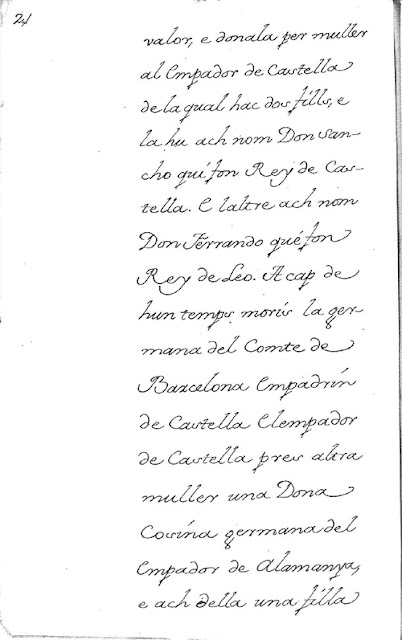 21
valor, e donala per muller
al Empador de Castella
de la qual hac dos fills, e
la hu ach nom Don San-
cho qui fon Rey de Cas-
tella. E laltre ach nom
Don Ferrando qué fon
Rey de Leo. A cap de
hun temps morís la ger-
mana del Comte de
Barcelona Empadrín
de Castella Elempador
de Castella pres altra
muller una Dona
Cosína germana del
Empador de Alamanya,
e ach della una filla